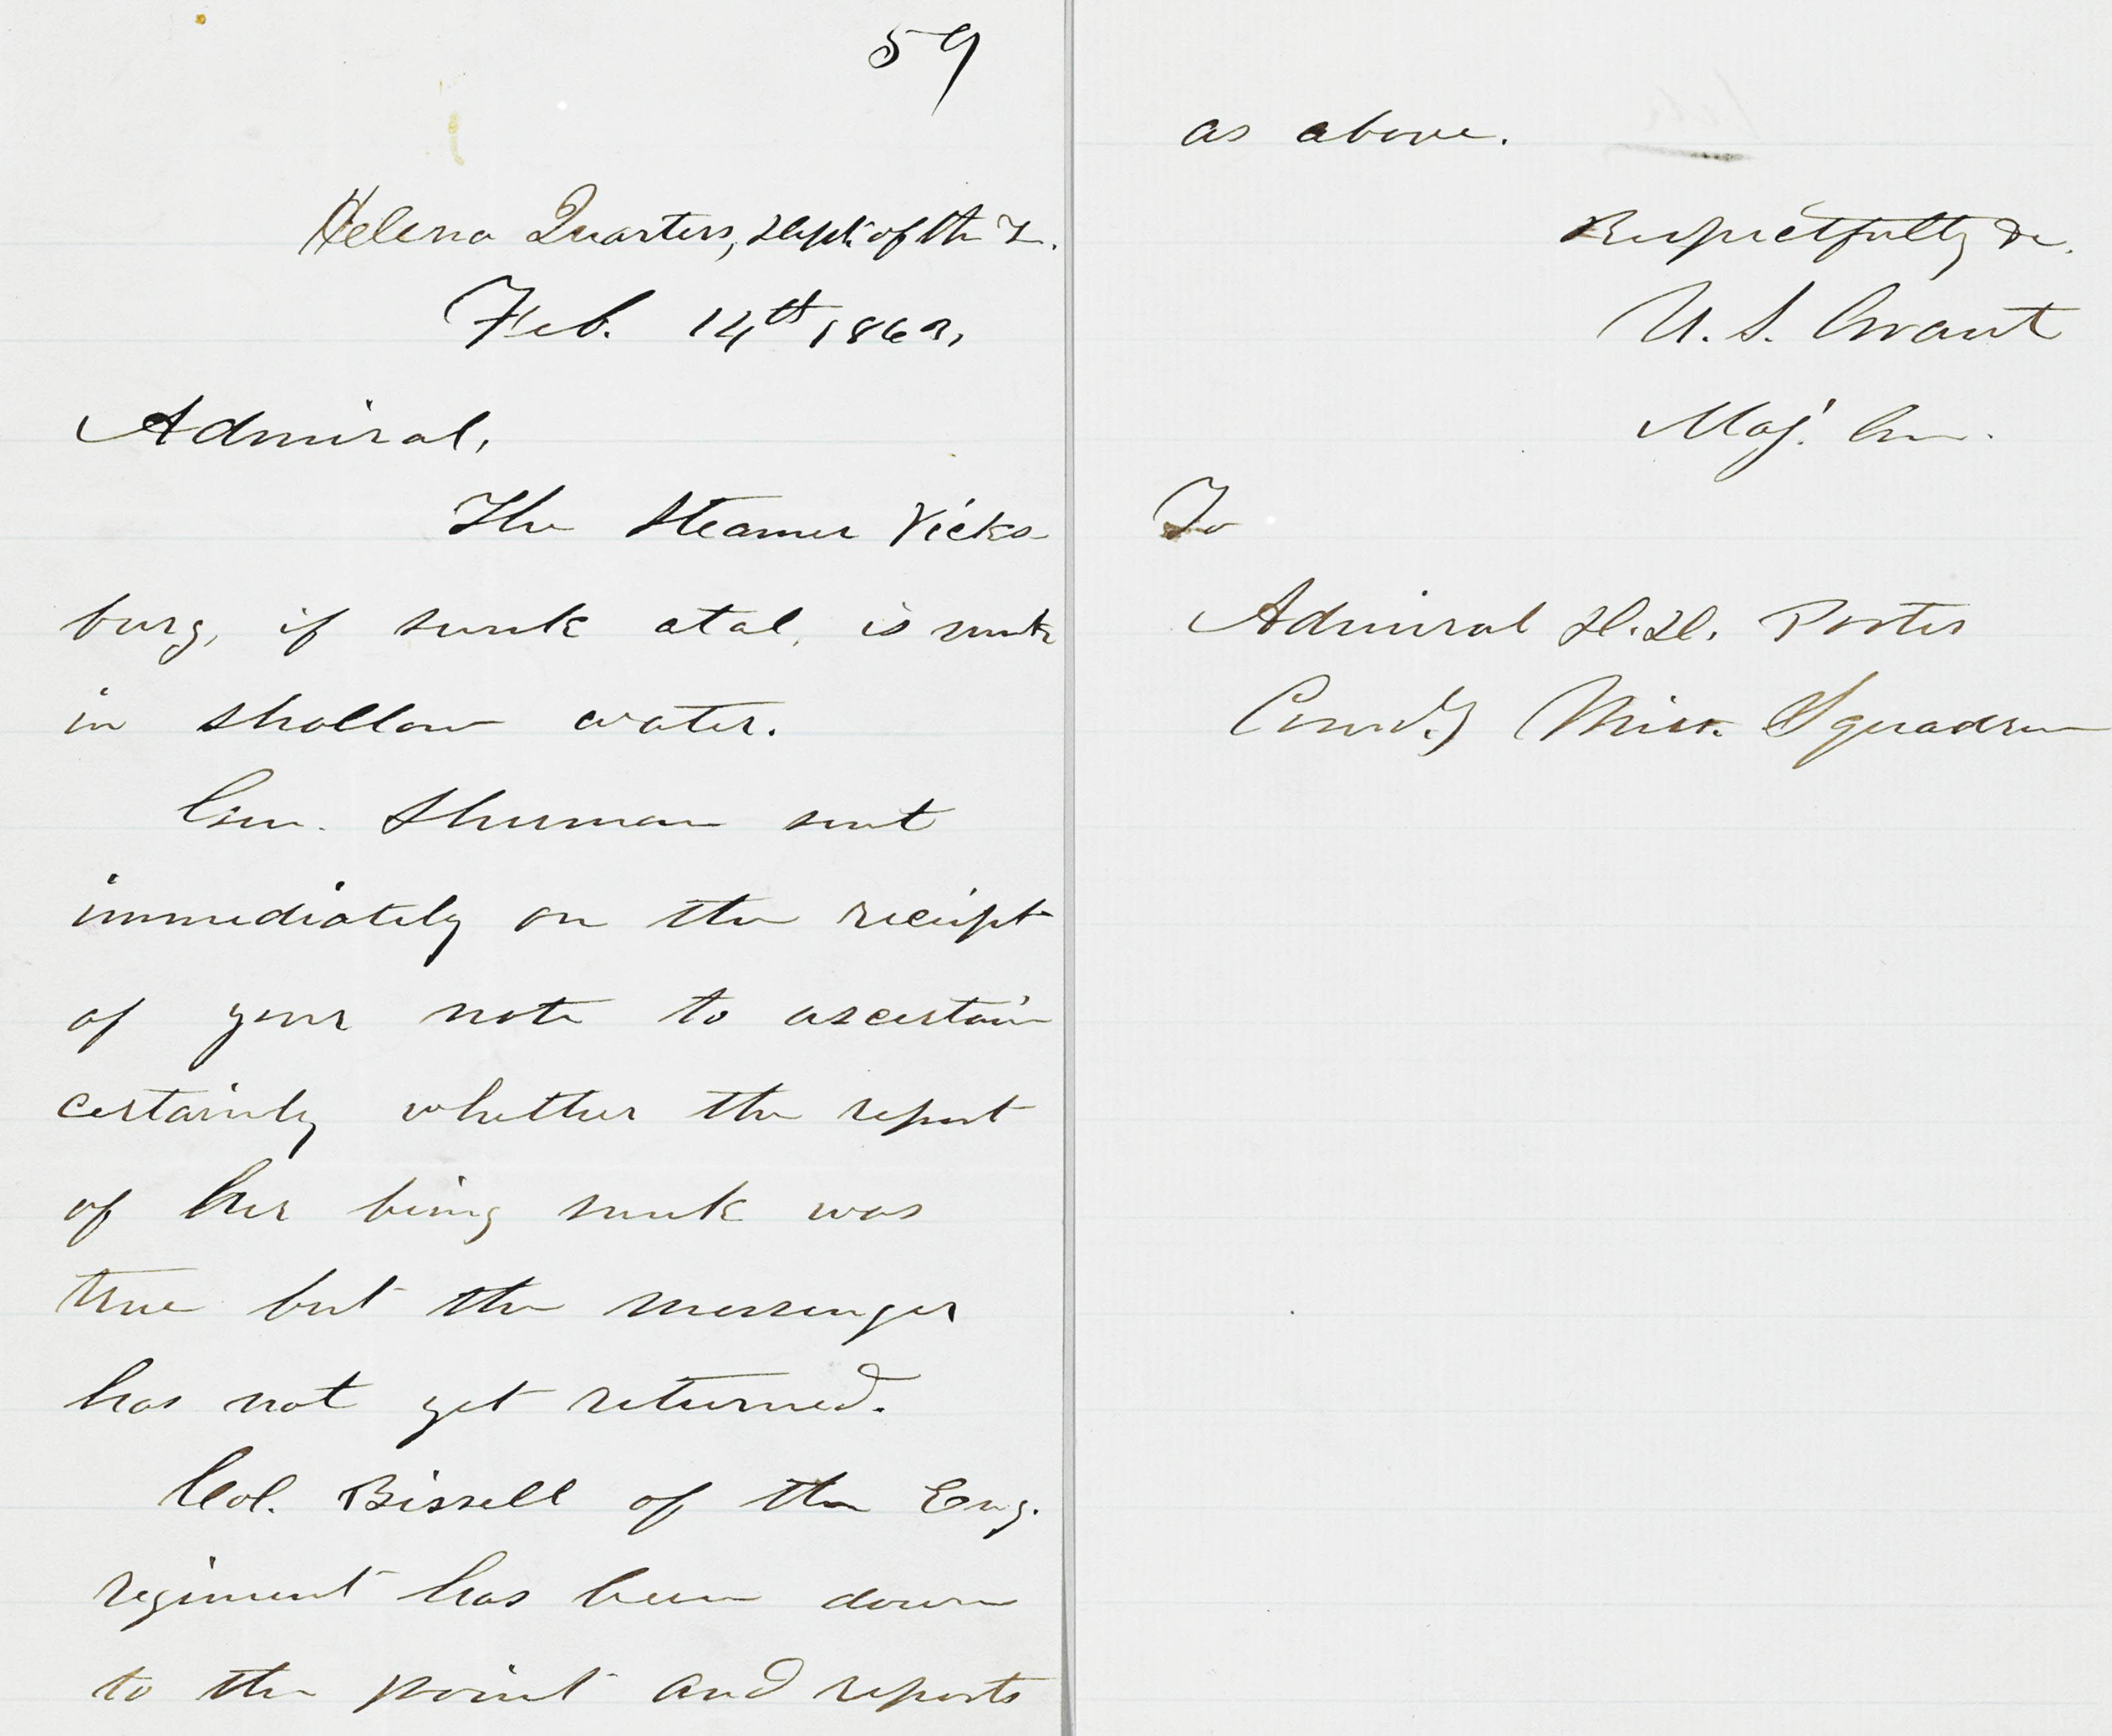 59
Helena Quarters, Dept of the T.
Feb. 14th 1863,
Admiral,
The Steamer Vicks-
burg, if sunk atal, is sunk
in shallow water.
Gen. Sherman sent
immediately on the receipt
of your note to ascertain
certainly whether the report
of her being sunk was
true but the messenger
has not yet returned.
Col. Bissell of the Eng.
regiment has been down
to the point and reports
as above.
Respectfully &c.
U. S. Grant
Maj. Gen.
To
Admiral D. D. Porter
Comd.g Miss. Squadron